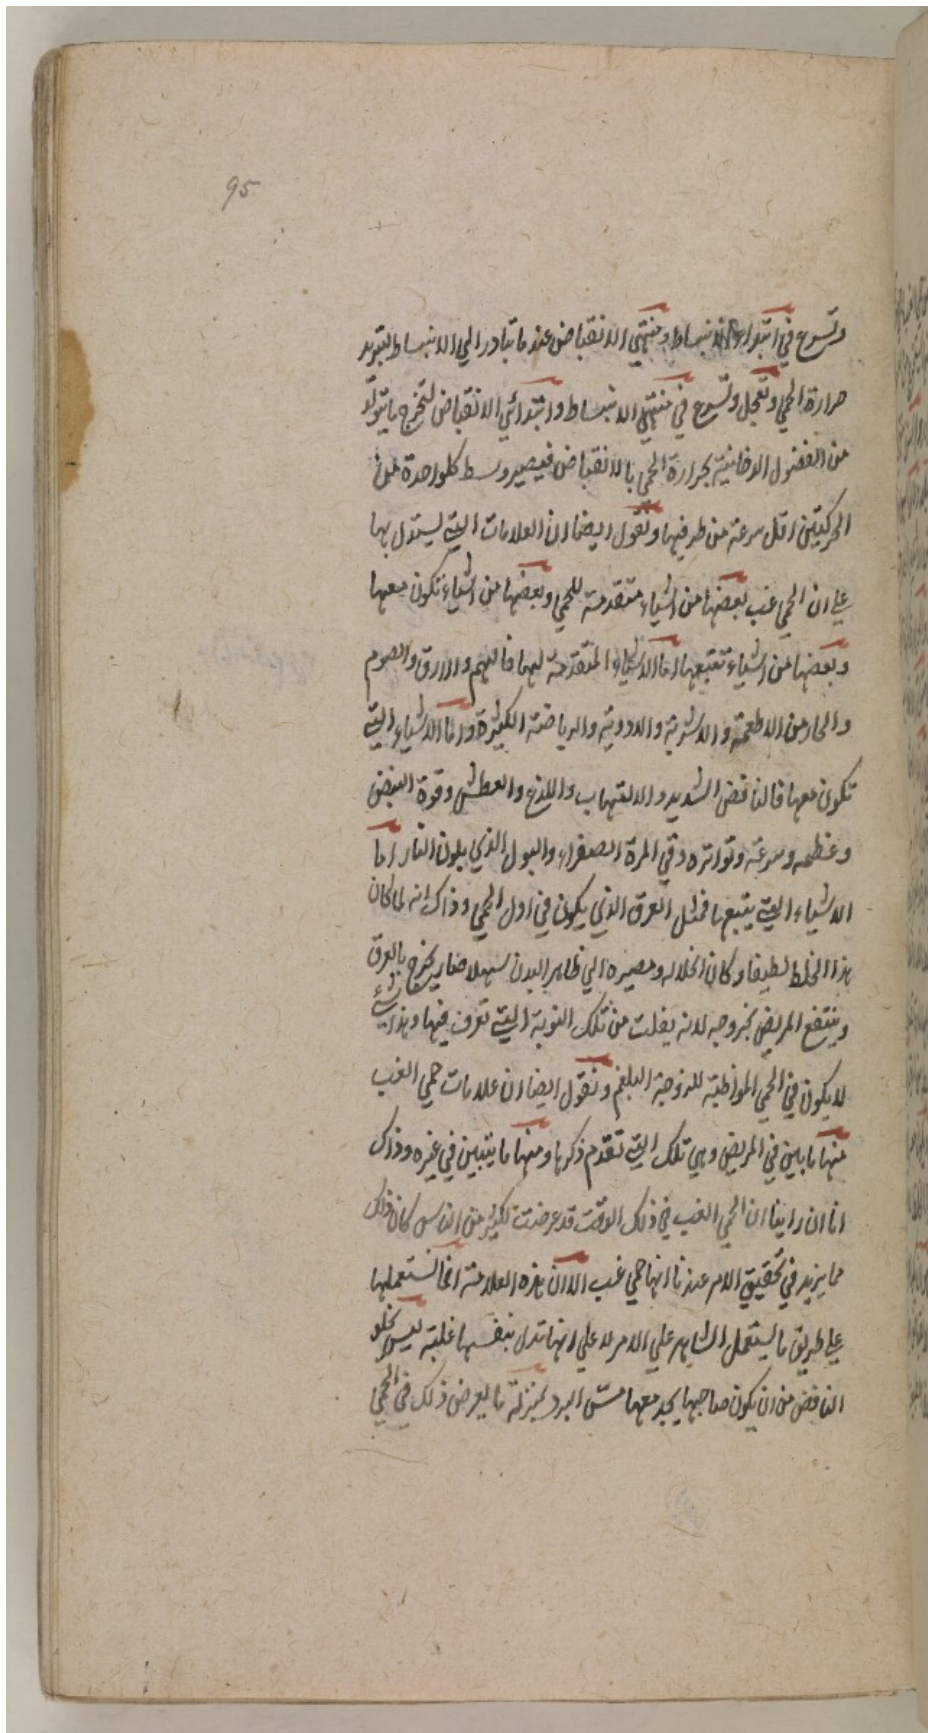 95
وتسرع في ابتداء الانبساط ومنتهي الانقباض عند ما تبادر الي الانبساط لتبريد
حرارة الحمي وتعجل وتسرع في منتهي الانبساط وابتدائي الانقباض لتخرج ما يتولد
من الفضول الدخانية بحرارة الحمي بالانقباض فيصير وسط كلواحدة من
الحركتين اقل سرعة من طرفيها ونقول ايضا ان العلامات التي يستدل بها
علي ان الحمي غب بعضها من اشياء متقدمة للحمي وبعضها من اشياء تكون معها
وبعضها من اشياء تتبعها اما الاشياء المتقدمة لها فالهم والارق والصوم
والحار من الاطعمة والاشربة والادوية والرياضة الكثيرة واما الاشياء التي
تكون معها فالنافض الشديد والالتهاب واللذع والعطش وقوة النبض
وعظمه وسرعته وتواتره وقي المرة الصفراء والبول الذي بلون النار اما
الاشياء التي يتبعها فمثل العرق الذي يكون في اول الحمي وذاك انه لما كان
هذا الخلط لطيفا وكان انحلاله ومصيره الي ظاهر البدن سهلا صار يخرج بالعرق
وينتفع المريض بخروجه لانه يفلت من تلك النوبة التي تعرف فيها وهذا شيء
لا يكون في الحمي المواظبة للزوجة البلغم ونقول ايضا ان علامات حمي الغب
منها ما يبين في المريض وهي تلك التي تقدم ذكرها ومنها ما يتبين في غيره وذاك
انا ان راينا ان الحمي الغب في ذلك الوقت قد عرضت لكثير من الناس كان ذلك
مما يزيد في تحقيق الامر عندنا انها حمي غب الا ان هذه العلامة انما نستعملها
علي طريق ما يستعمل الشاهد علي الامر لا علي انها تدل بنفسها غلبة ليس يخلو
النافض من ان يكون صاحبها يجد معها مس البرد بمنزلة ما يعرض ذلك في الحمي